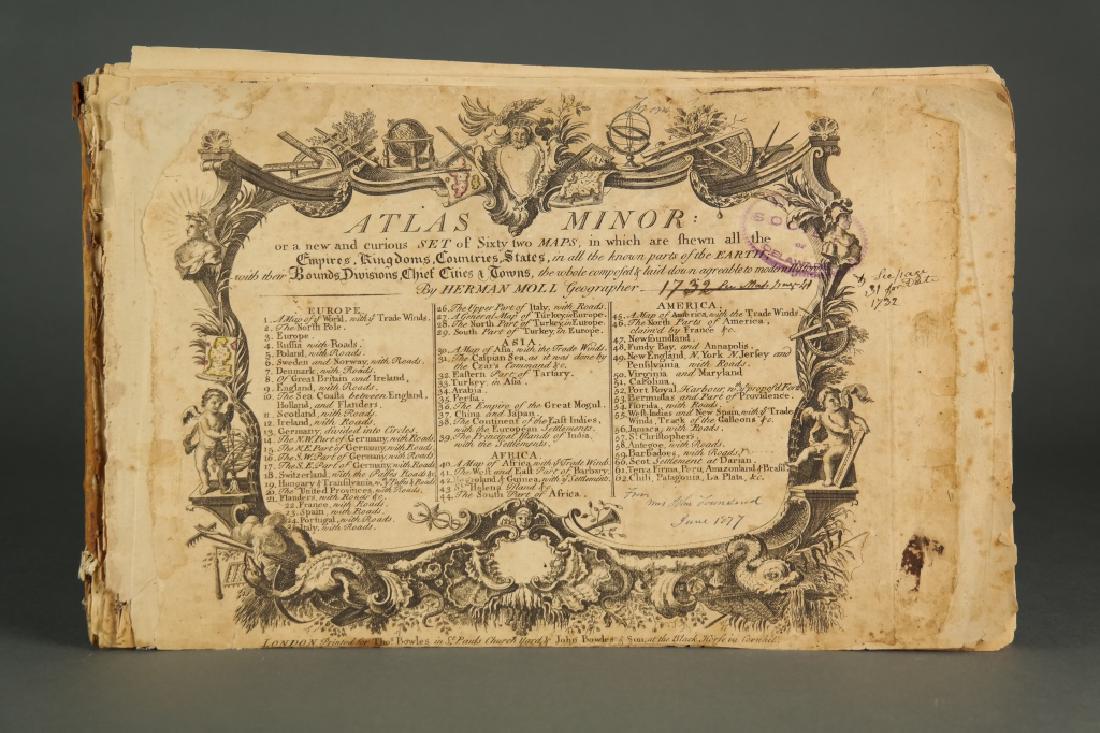 ATLAS MINOR:
or a new and curious SET of Sixty two MAPS, in which are shewn all the
Empires, Kingdoms, Countries, States, in all the known parts of the EARTH;
with their Bounds, Divisions, Chief Cities & Towns, the whole composed & laid down agreable to modern History
By HERMAN MOLL Geographer
1732
See page
31 for Date
1732
SOC
OF
DELAWARE
EUROPE.
1. A Map of yᵉ World, with yᵉ Trade Winds.
2. The North Pole.
3. Europe.
4. Russia with Roads.
5. Poland, with Roads.
6. Sweden and Norway, with Roads.
7. Denmark, with Roads.
8. Of Great Britain and Ireland,
9. England, with Roads.
10. The Sea Coasts between England,
Holland, and Flanders.
11. Scotland, with Roads.
12. Ireland, with Roads.
13. Germany, divided into Circles.
14. The N.W. Part of Germany, with Roads.
15. The N.E. Part of Germany, with Roads
16. The S.W. Part of Germany, with Roads
17. The S.E. Part of Germany, with Roads
18. Switzerland, with the Passes Roads &c
19. Hungary & Transilvania, wᵗʰ yᵉ Passes & Roads
20. The United Provinces, with Roads.
21. Flanders, with Roads &c.
22. France, with Roads.
23. Spain, with Roads.
24. Portugal, with Roads.
25. Italy, with Roads.
26. The Upper Part of Italy, with Roads.
27. A General Map of Turkey, in Europe.
28. The North Part of Turkey, in Europe.
29. South Part of Turkey, in Europe.
ASIA
30. A Map of Asia, with the Trade Winds.
31. The Caspian Sea, as it was done by
the Czar's Command &c.
32. Eastern Part of Tartary.
33. Turkey, in Asia.
34. Arabia.
35. Persia.
36. The Empire of the Great Mogul.
37. China and Japan.
38. The Continent of the East Indies,
with the European Settlements.
39. The Principal Islands of India,
with the Settlements.
AFRICA.
40. A Map of Africa, with yᵉ Trade Winds
41. The West and East Part of Barbary.
42. Negroland & Guinea, with yᵉ Settlements
43. Sᵗ Helena Island &c.
44. The South Part of Africa.
AMERICA.
45. A Map of America, with the Trade Winds
46. The North Parts of America,
claim'd by France &c.
47. Newfoundland.
48. Fundy Bay, and Annapolis.
49. New England, N. York N. Jersey and
Pensilvania with Roads.
50. Virginia and Maryland
51. Carolina.
52. Port Royal Harbour, wᵗʰ yᵉ propos'd Fort
53. Bermudas and Part of Providence.
54. Florida, with Roads.
55. West Indies and New Spain, with yᵉ Trade
Winds, Track of the Galleons &c.
56. Jamaca, with Roads.
57. Sᵗ Christophers.
58. Antegoe, with Roads.
59. Barbadoes, with Roads.
60. Scot Settlement at Darian.
61. Terra Firma, Peru, Amazonland & Brasil
62. Chili, Patagonia, La Plata, &c.
From
Townsend
June 1877
LONDON Printed for Thoˢ Bowles in Sᵗ Pauls Church Yard, & John Bowles & Son, at the Black Horse in Cornhil.